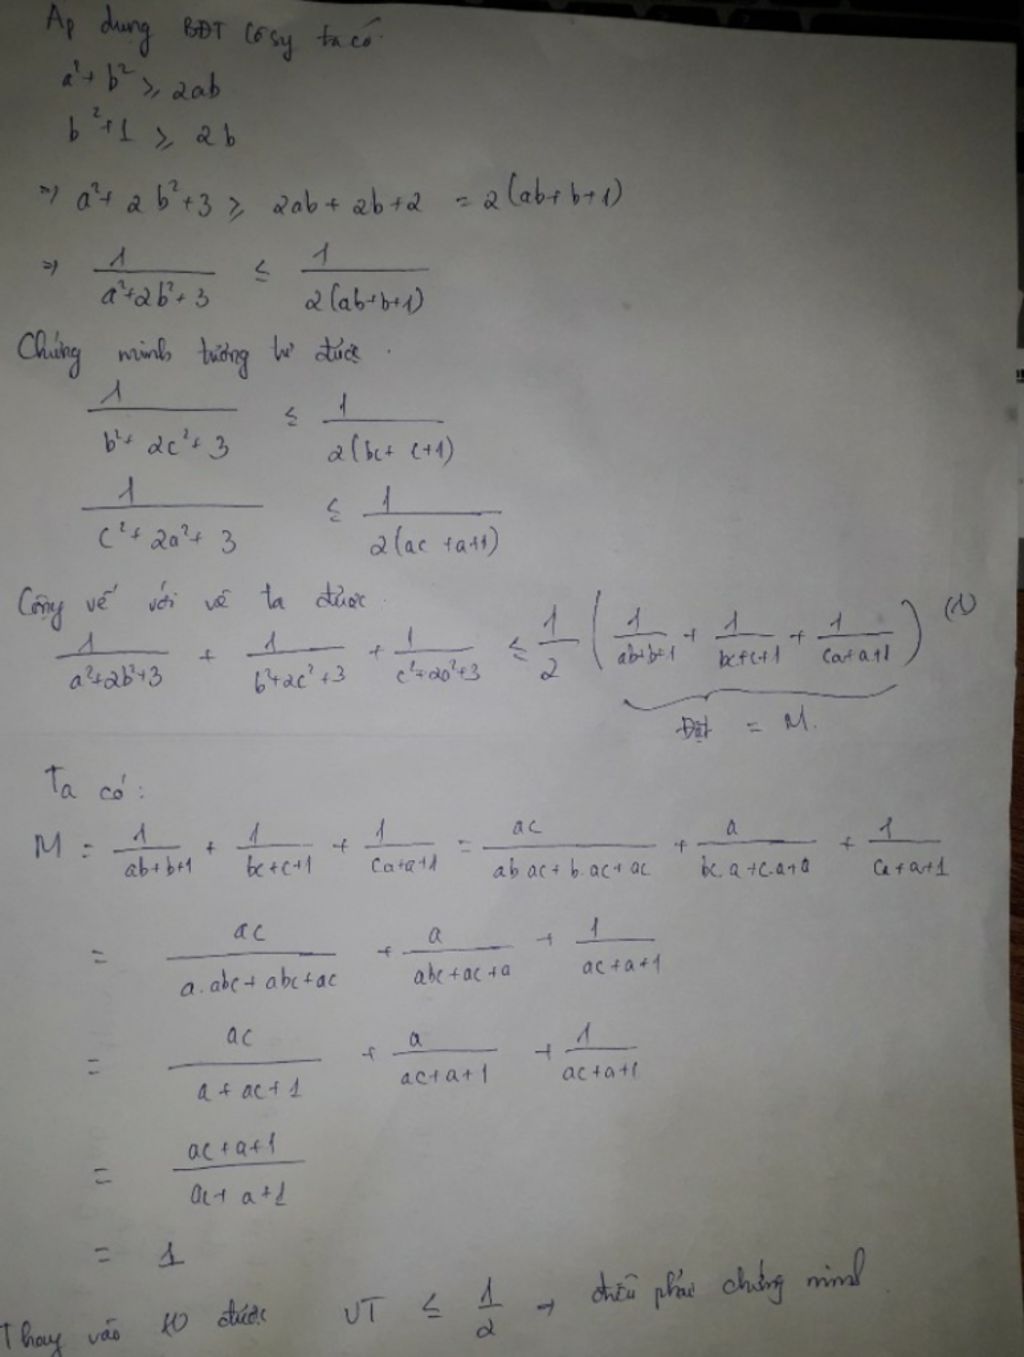 Áp dụng BĐT Cosy ta có
a² + b² ≥ 2ab
b² + 1 ≥ 2b
=> a² + 2b² + 3 ≥ 2ab + 2b + 2 = 2(ab + b + 1)
=> 1/(a² + 2b² + 3) ≤ 1/(2(ab + b + 1))
Chứng minh tương tự được.
1/(b² + 2c² + 3) ≤ 1/(2(bc + c + 1))
1/(c² + 2a² + 3) ≤ 1/(2(ac + a + 1))
Cộng vế với vế ta được
1/(a² + 2b² + 3) + 1/(b² + 2c² + 3) + 1/(c² + 2a² + 3) ≤ 1/2 (1/(ab + b + 1) + 1/(bc + c + 1) + 1/(ca + a + 1)) (1)
Đặt = M.
Ta có:
M = 1/(ab + b + 1) + 1/(bc + c + 1) + 1/(ca + a + 1) = ac/(ab.ac + b.ac + ac) + a/(bc.a + c.a + a) + 1/(ca + a + 1)
= ac/(a.abc + abc + ac) + a/(abc + ac + a) + 1/(ac + a + 1)
= ac/(a + ac + 1) + a/(ac + a + 1) + 1/(ac + a + 1)
= (ac + a + 1)/(ac + a + 1)
= 1
Thay vào (1) được VT ≤ 1/2 → điều phải chứng minh